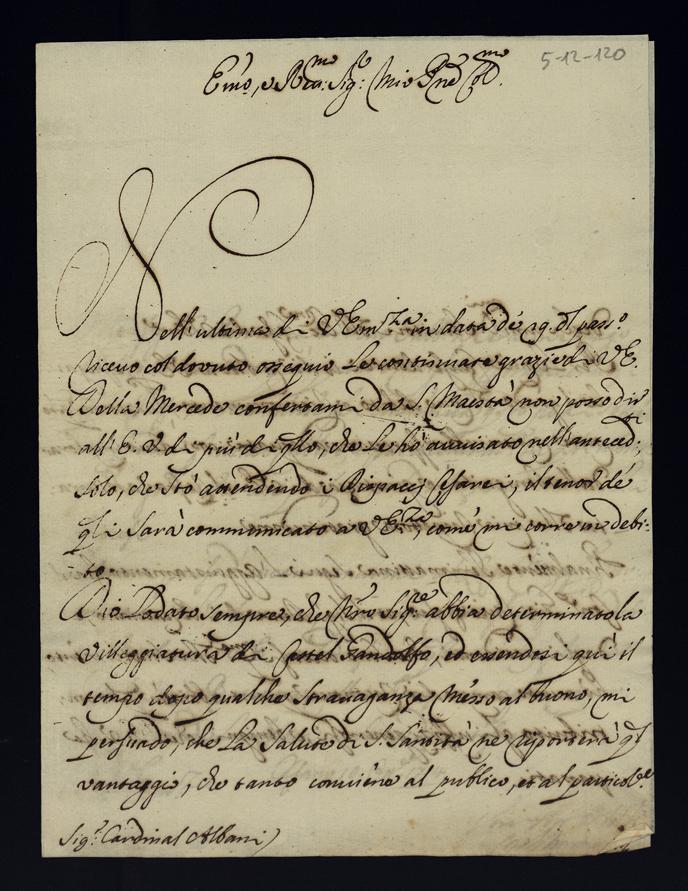 5-12-120
Em̃o, e R̃mo: Sig.r Mio P̃ne Col.mo
Nell'ultima di V. Em.za in data de 19. del pass.o
ricevo col dovuto ossequio le continuate grazie di V. E.
Della Mercede confertami da S. Maestà non posso dir
all'E. V. di più di q̃llo, che le hò avvisato nell'anteced.ti;
solo, che stò attendendo i Dispacci Cesarei, il tenor de
q̃li sarà communicato a V. E.za, come mi corre in debi-
to.
Dio lodato sempre, che N̄ro Sig.re abbia determinato la
villeggiatura di Castel Gandolfo, ed essendosi quì il
tempo dopo qualche stravaganza messo al buono, mi
persuado, che la salute di S. Santità ne riporterà q̃l
vantaggio, che tanto conviene al publico, et al particol.re
Sig.r Cardinal Albani